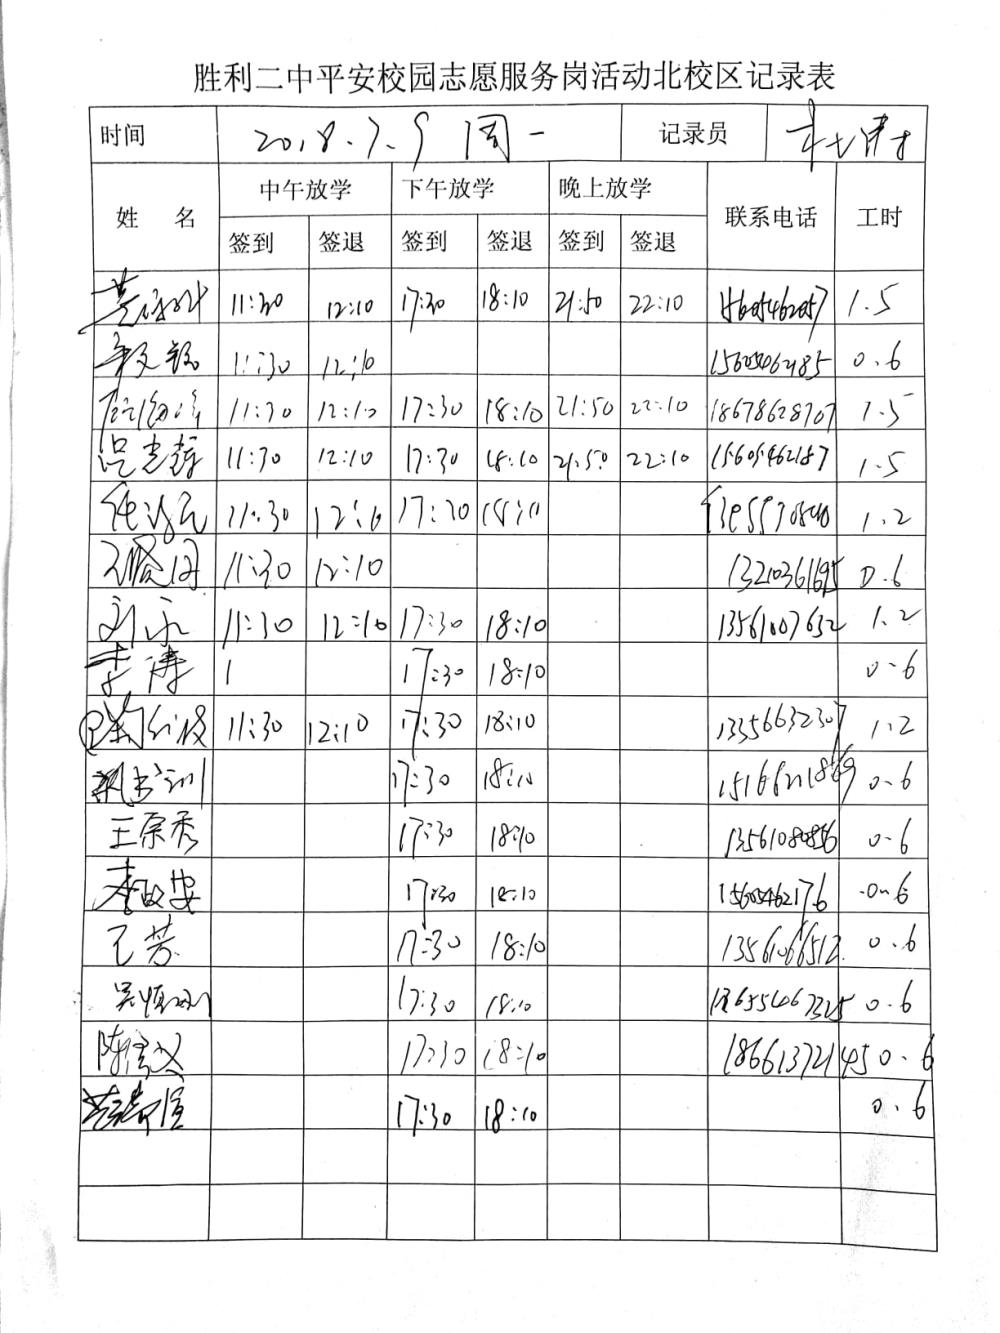 胜利二中平安校园志愿服务岗活动北校区记录表
时间 2018.7.9 周一 记录员
姓 名 中午放学 下午放学 晚上放学 联系电话 工时
签到 签退 签到 签退 签到 签退
11:30 12:10 17:30 18:10 21:50 22:10 15605462057 1.5
11:30 12:10 15605462185 0.6
11:30 12:10 17:30 18:10 21:50 22:10 18678628707 1.5
11:30 12:10 17:30 18:10 21:50 22:10 15605462187 1.5
11:30 12:10 17:30 18:10 1.2
11:30 12:10 13210361695 0.6
刘永 11:30 12:10 17:30 18:10 13561007632 1.2
李涛 1 17:30 18:10 0.6
11:30 12:10 17:30 18:10 13356632307 1.2
17:30 18:10 15166211869 0.6
王宗秀 17:30 18:10 13561080856 0.6
17:30 18:10 15605462176 0.6
王芳 17:30 18:10 13561066512 0.6
17:30 18:10 0.6
陈 17:30 18:10 18661372145 0.6
17:30 18:10 0.6